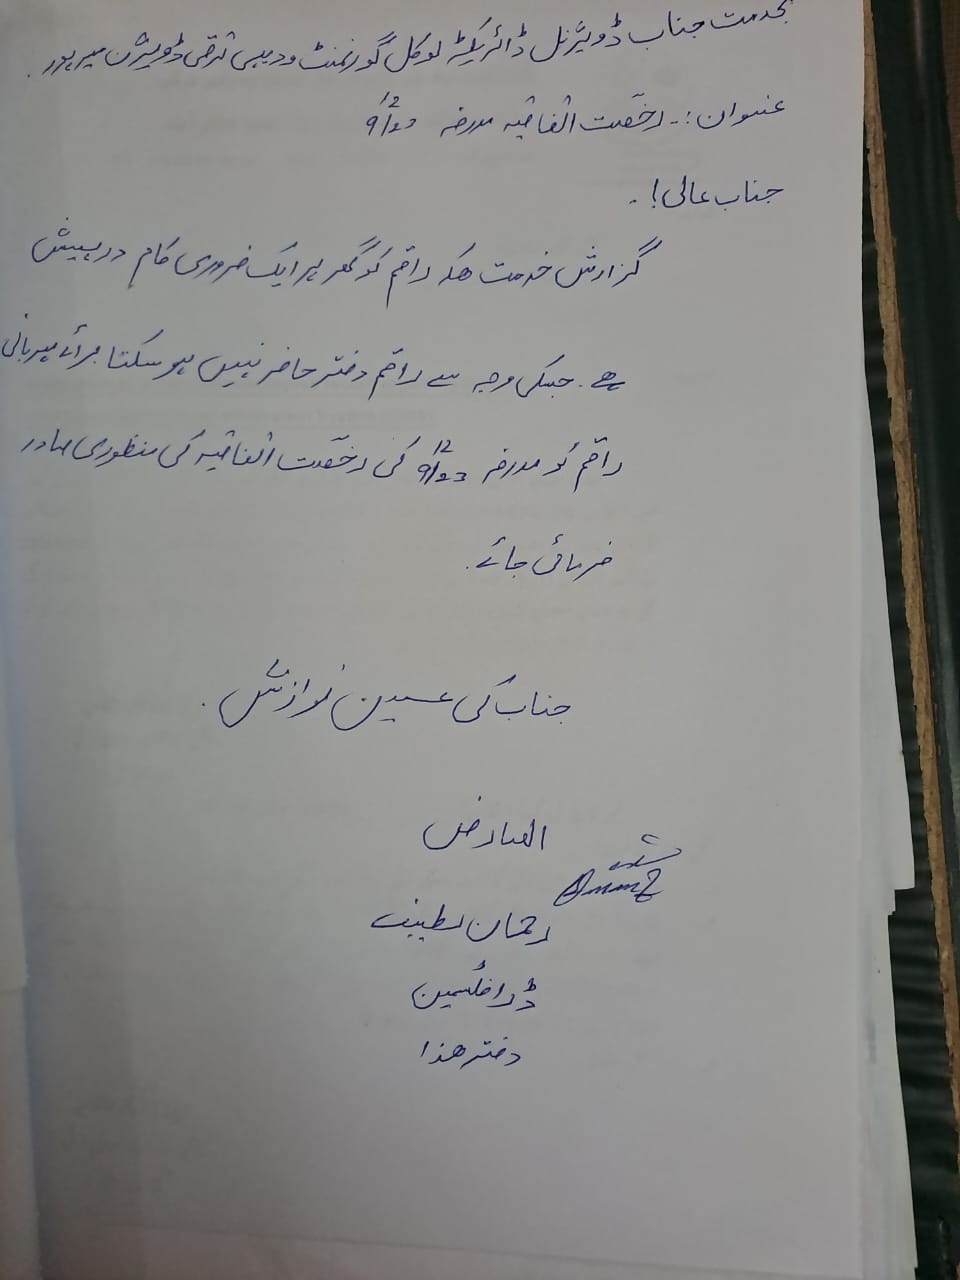 بخدمت جناب ڈویژنل ڈائریکٹر لوکل گورنمنٹ و دیہی ترقی ڈویژن میرپور۔
عنوان:۔ رخصت اتفاقیہ مورخہ 9/12/23
جناب عالی!۔
گزارش خدمت ھیکہ راقم کو گھر پر ایک ضروری کام درپیش
ھے۔ جسکی وجہ سے راقم دفتر حاضر نہیں ہو سکتا برائے مہربانی
راقم کو مورخہ 9/12/23 کی رخصت اتفاقیہ کی منظوری صادر
فرمائی جائے۔
جناب کی عین نوازش۔
العارض
رحمان لطیف
ڈرافٹسمین
دفتر ھذا